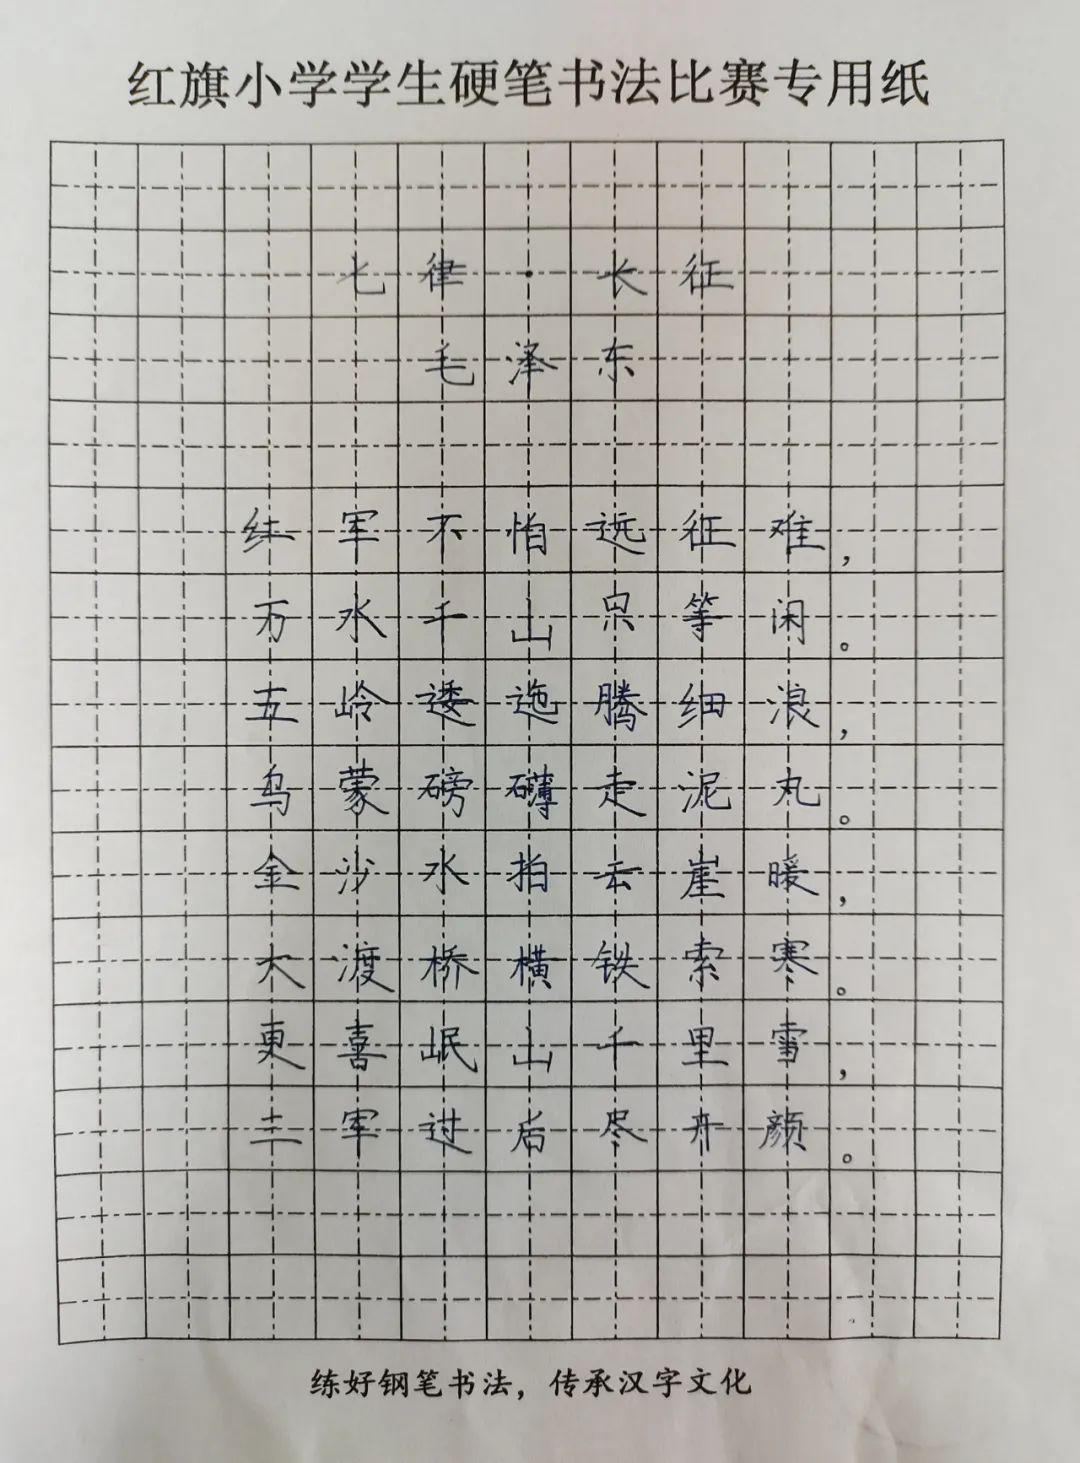 红旗小学学生硬笔书法比赛专用纸
七律·长征
毛泽东
红军不怕远征难，
万水千山只等闲。
五岭逶迤腾细浪，
乌蒙磅礴走泥丸。
金沙水拍云崖暖，
大渡桥横铁索寒。
更喜岷山千里雪，
三军过后尽开颜。
练好钢笔书法，传承汉字文化